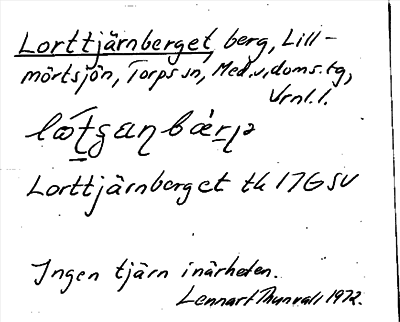 Lorttjärnberget, berg, Lill-
mörtsjön, Torps sn, Med.v.doms.tg,
Vrnl.l.
Lorttjärnberget tk 17G SV
Ingen tjärn i närheten.
Lennart Thunvall 1972.